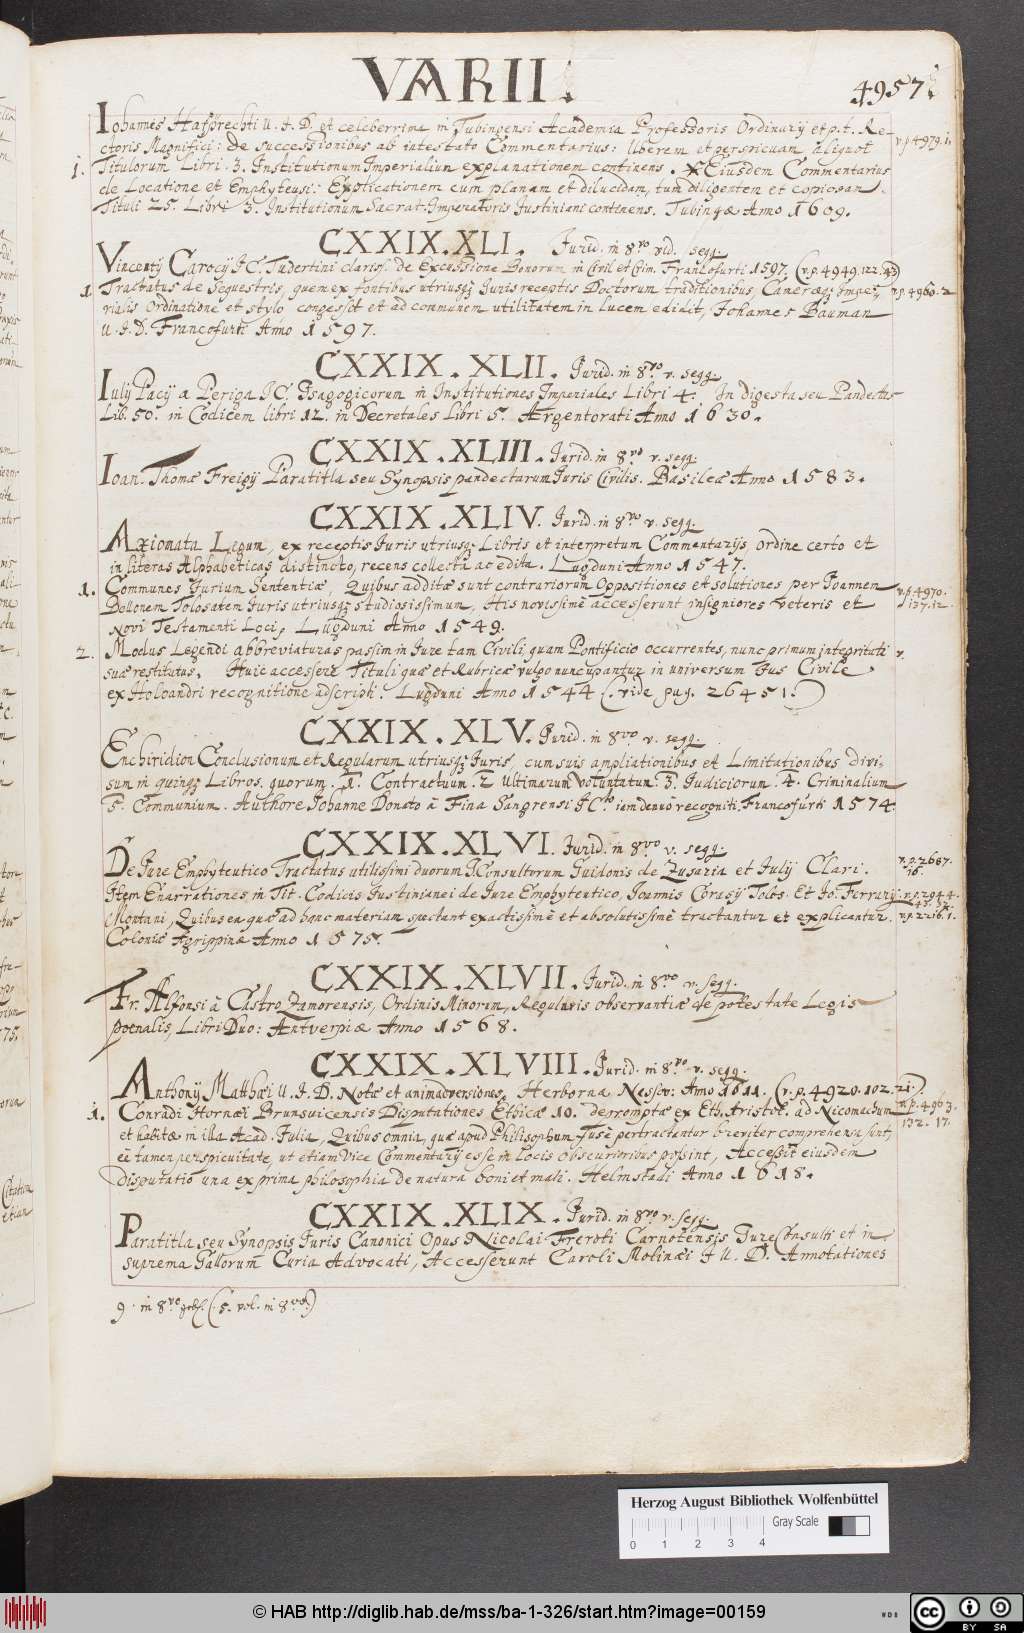 VARII.
4957.
Iohannis Hafprechti U. J. D. et celeberrima in Tubingensi Academia Professoris Ordinarij et p. t. Re-
ctoris Magnifici: De successionibus ab intestato Commentarius: Uberem et perspicuam aliquot
v. p. 4979. 1.
1. Titulorum Libri. 3. Institutionum Imperialium explanationem continens. Eiusdem Commentarius
de Locatione et Emphyteusi: Explicationem cum planam et dilucidam, tum diligentem et copiosam
Tituli 25. Libri 3. Institutionum Sacrat. Imperatoris Justiniani continens. Tubingæ Anno 1609.
CXXIX.XLI. Jurid. in 8vo vid. seqq.
Vincentij Carocij JC. Tudertini clariss. de Excussione Bonorum in Civil. et Crim. Francofurti 1597. (v. p. 4949. 122.
1. Tractatus de Sequestris, quem ex fontibus utriusq; Juris receptis Doctorum traditionibus, Cameræq; Impe-
v. p. 4960. 2
rialis Ordinatione et stylo congessit et ad communem utilitatem in lucem edidit, Johannes Bauman
U. J. D. Francofurti Anno 1597.
CXXIX. XLII. Jurid. in 8vo v. seqq.
Iulij Pacij a Beriga JC. Isagogicorum in Institutiones Imperiales Libri 4. In Digesta seu Pandectas
Lib. 50. in Codicem libri 12. in Decretales Libri 5. Argentorati Anno 1630.
CXXIX. XLIII. Jurid. in 8vo v. seqq.
Ioan. Thomæ Freigij Paratitla seu Synopsis pandectarum Juris Civilis. Basileæ Anno 1583.
CXXIX. XLIV. Jurid. in 8vo v. seqq.
Axiomata Legum, ex receptis Juris utriusq; Libris et interpretum Commentarijs, ordine certo et
in literas Alphabeticas distincto, recens collecta ac edita. Lugduni Anno 1547.
1. Communes Jurium Sententiæ, Quibus additæ sunt contrariorum Oppositiones et solutiones per Joannem
v. p. 4970.
137. 12.
Bellonem Tolosatem Juris utriusq; studiosissimum, His novissimè accesserunt insigniores veteris et
Novi Testamenti Loci, Lugduni Anno 1549.
2. Modus Legendi abbreviaturas passim in Jure tam Civili quam Pontificio occurrentes, nunc primum integritati
v.
suæ restitutus. Huic accessere Tituli quæ et Rubricæ vulgo nuncupantur in universum Jus Civile
ex Holoandri recognitione adscripti. Lugduni Anno 1544 (. vide pag. 26451.)
CXXIX. XLV. Jurid. in 8vo v. seqq.
Enchiridion Conclusionum et Regularum utriusq; Juris, cum suis ampliationibus et Limitationibus divi-
sum in quinq; Libros, quorum. 1. Contractuum. 2 Ultimarum Voluntatum. 3. Judiciorum. 4. Criminalium
5. Communium. Authore Johanne Donato à Fina Sangrensi JCto iam denuò recogniti. Francofurti 1574.
CXXIX. XLVI. Jurid. in 8vo v. seqq.
De Jure Emphyteutico Tractatus utilissimi duorum JConsultorum Guidonis de Zusaria et Julij Clari.
v. p. 2687.
16.
Item Enarrationes in Tit. Codicis Justinianei de Jure Emphyteutico, Joannis Corasij Tolos. Et Jo. Ferrarij
v. p. 2944.
Montani, Quibus ea quæ ad hanc materiam spectant exactissimè et absolutissimè tractantur et explicantur.
v. p. 2216. 1.
Coloniæ Agrippinæ Anno 1575.
CXXIX. XLVII. Jurid. in 8vo v. seqq.
Fr. Alfonsi à Castro Zamorensis, Ordinis Minorum, Regularis observantiæ de potestate Legis
poenalis, Libri Duo: Antverpiæ Anno 1568.
CXXIX. XLVIII. Jurid. in 8vo v. seqq.
Anthonij Matthæi U. J. D. Notæ et animadversiones. Herborna Nassov: Anno 1611. (v. p. 4929. 102. 21.)
1. Conradi Hornæi Brunsuicensis Disputationes Ethicæ 10. depromptæ ex Eth. Aristot. ad Nicomachum
v. p. 4963.
132. 17.
et habitæ in illa Acad. Julia, Quibus omnia, quæ apud Philisophum fusè pertractantur breviter comprehensa sunt,
eâ tamen perspicuitate, ut etiam Vice Commentarij esse in locis obscurioribus possint, Accessit eiusdem
disputatio una ex prima philosophia de natura boni et mali. Helmstadi Anno 1618.
CXXIX. XLIX. Jurid. in 8vo v. seqq.
Paratitla seu Synopsis Juris Canonici Opus Nicolai Freroti Carnotensis Jureconsulti et in
suprema Gallorum Curia Advocati, Accesserunt Caroli Molinæi J U. D. Annotationes
9. in 8vo (. 5. vol. in 8vo.)
Herzog August Bibliothek Wolfenbüttel
Gray Scale
0 1 2 3 4
© HAB http://diglib.hab.de/mss/ba-1-326/start.htm?image=00159
WDB
cc BY SA